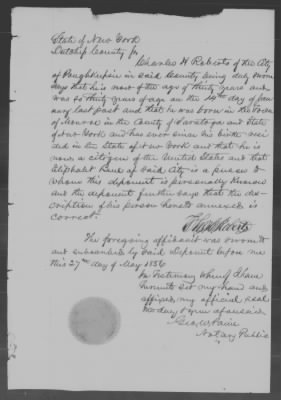 State of New York
Dutchess County ss
Charles H Roberts of the City
of Poughkeepsie in said County being duly sworn
says that he is now of the age of thirty years and
was of thirty years of age on the 14th day of Jan
uary last past and that he was born in the Town
of in the County of Saratoga and State
of New York and has ever since his birth resi
ded in the State of New York and that he is
now a citizen of the United States and that
Eliphalet of said City is a person to
whom this deponent is personally known
and this deponent further says that the des
cription of his person hereto annexed is
correct.
Roberts
The foregoing affidavit was sworn to
and subscribed by said Deponent before me
this 27th day of May 1856
In Testimony Whereof I have
hereunto set my hand and
affixed my official seal
the day & year aforesaid
Geo. W. Paine
Notary Public